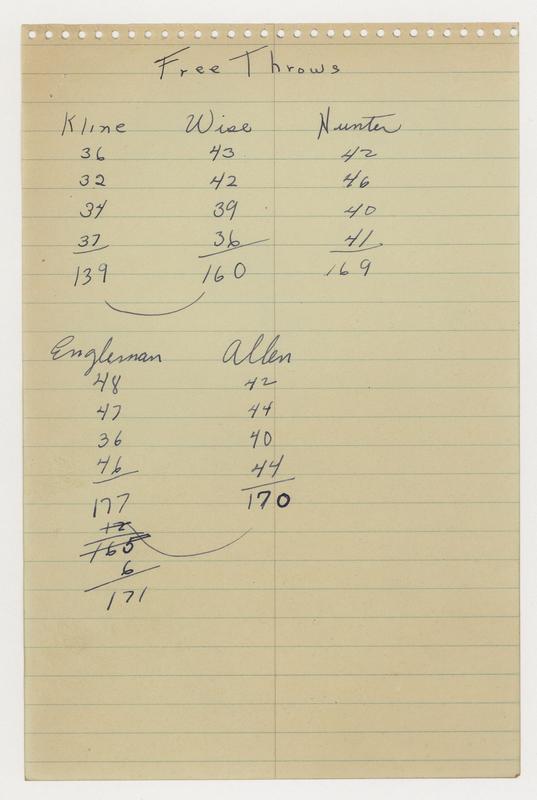 Free Throws
Kline Wise Hunter
36 43 42
32 42 46
34 39 40
37 36 41
139 160 169
Engleman Allen
48 42
47 44
36 40
46 44
177 170
12
165
6
171